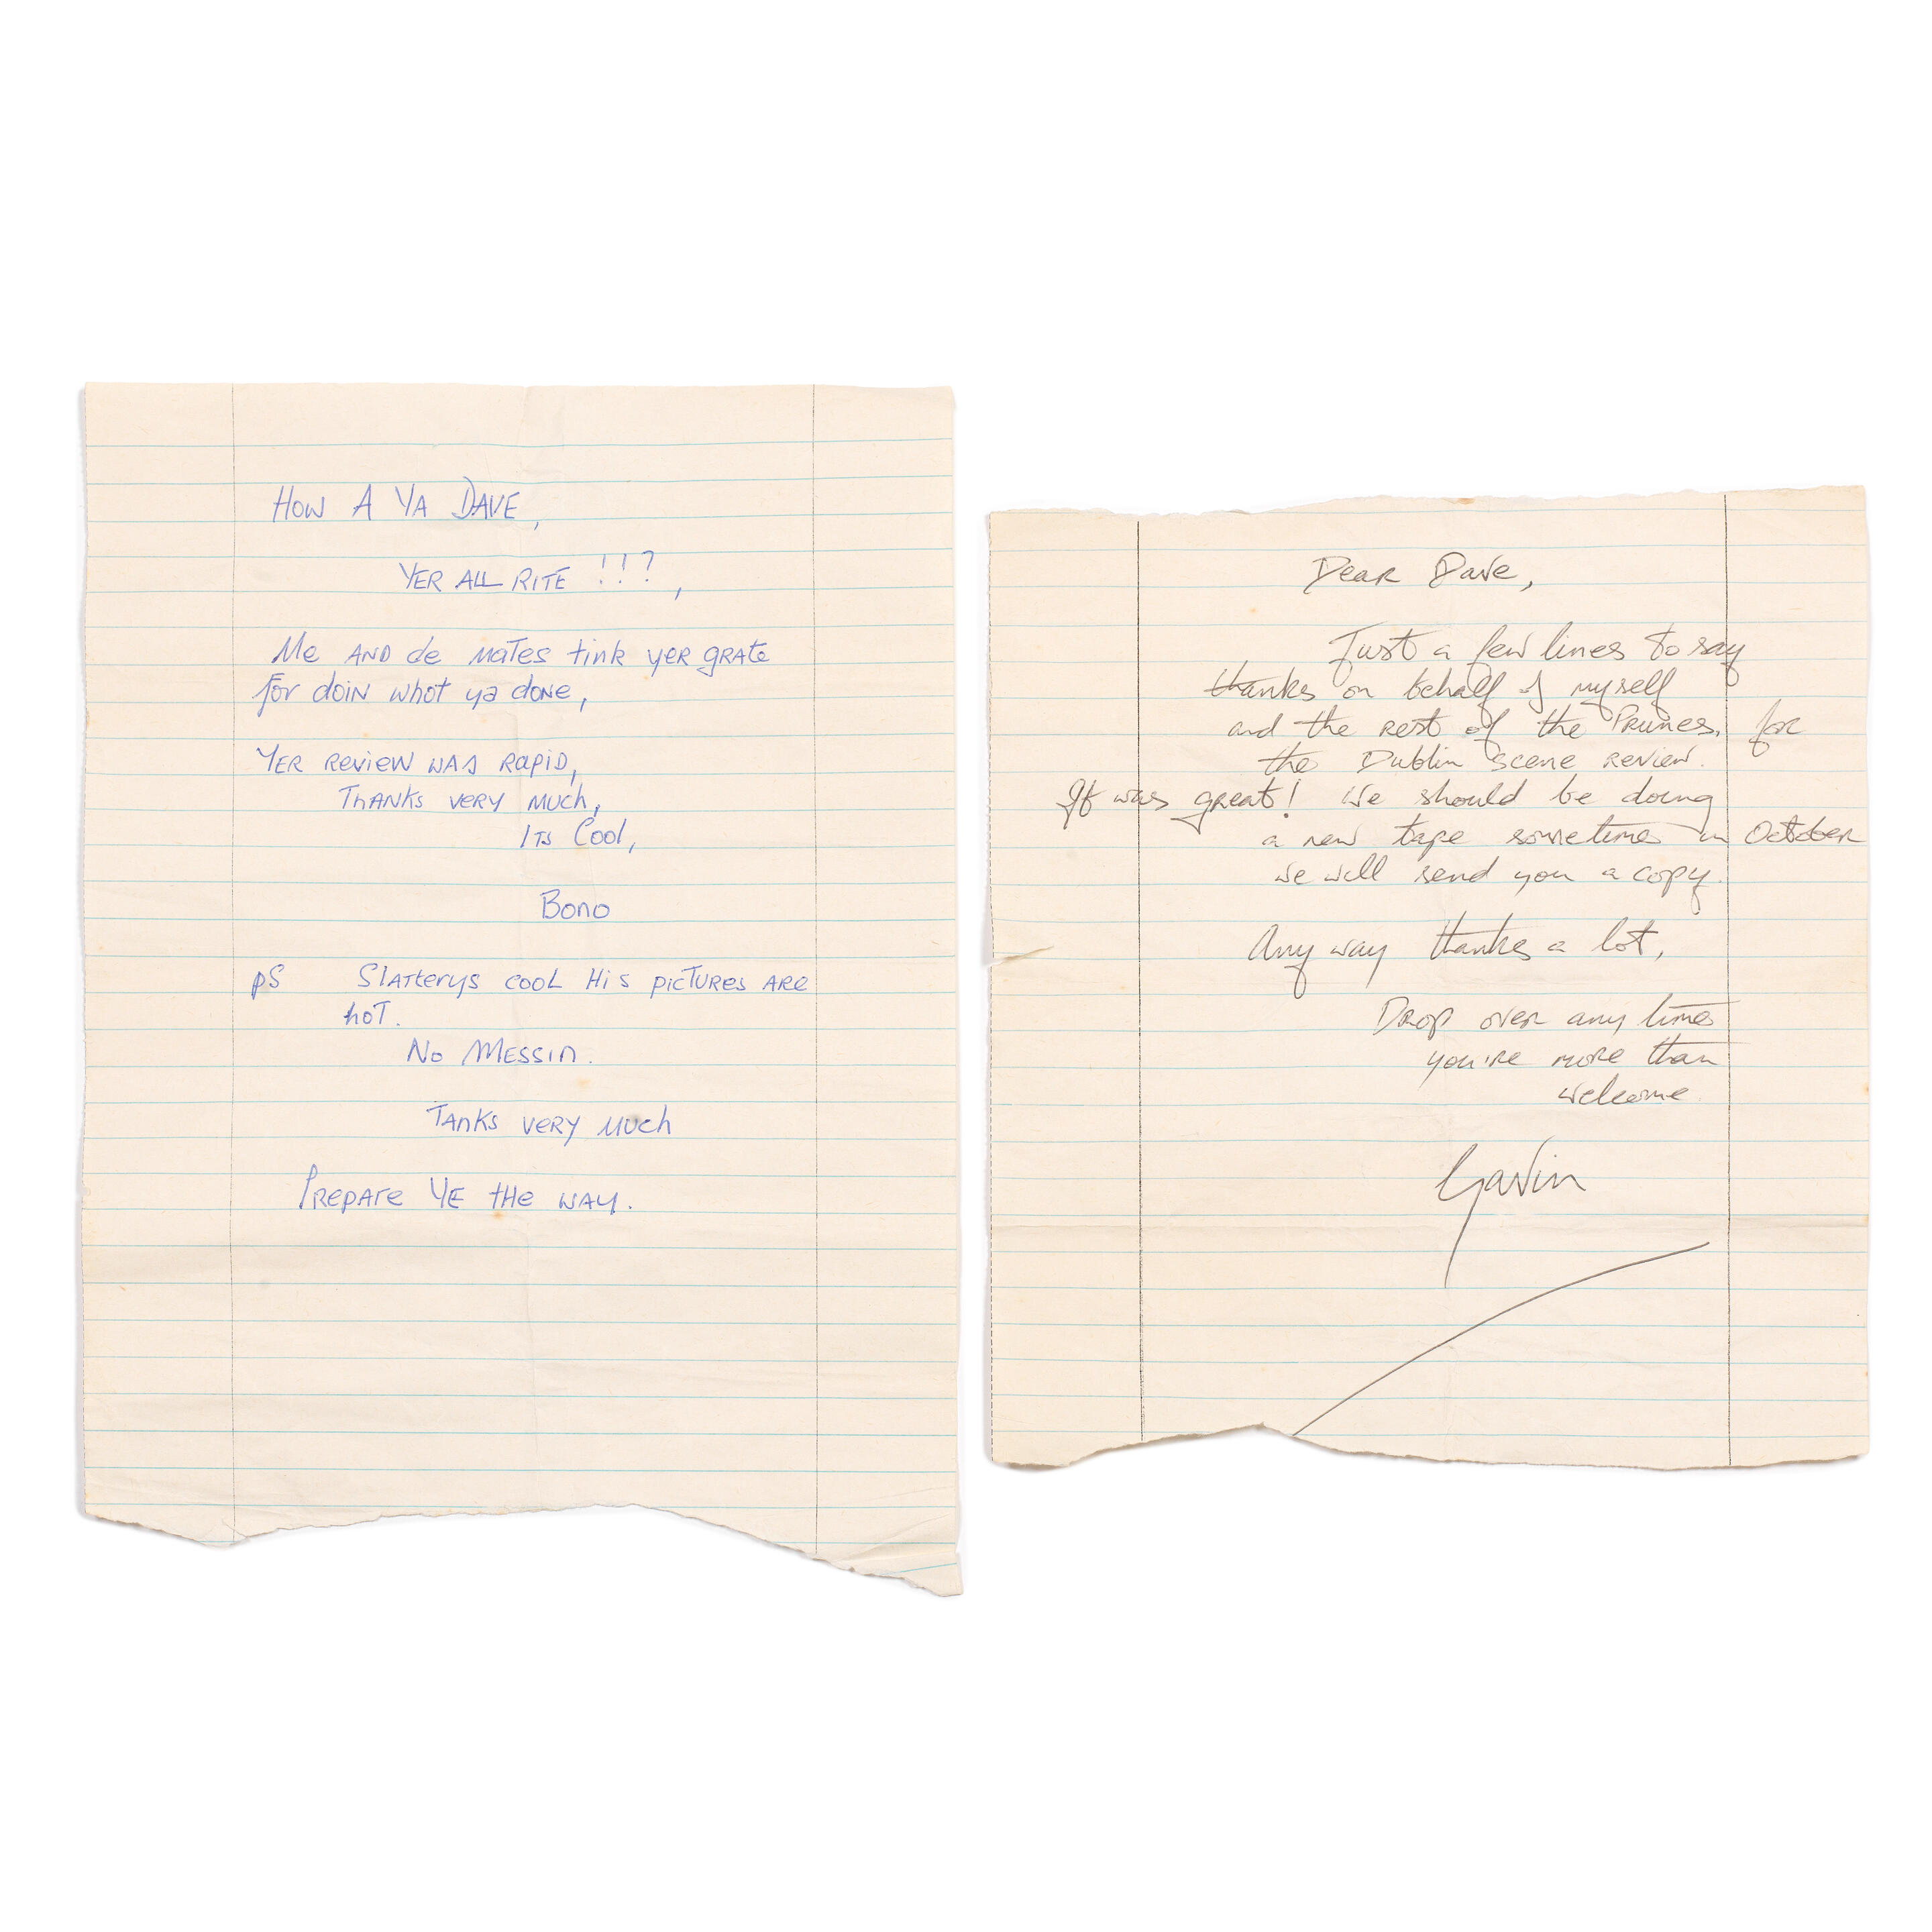 How A YA DAVE,
YER ALL RITE !!?,
Me AND de MATES tink YER GRATE
for doin whot ya done,
YER REVIEW WAS RAPID,
THANKS VERY MUCH,
ITS COOL,
Bono
PS Slatterys cool His pictures are
hot.
No Messin.
TANKS VERY MUCH
Prepare YE the way.
Dear Dave,
Just a few lines to say
thanks on behalf of myself
and the rest of the Prunes, for
the Dublin scene review.
It was great! We should be doing
a new tape sometimes in October
we will send you a copy.
Any way thanks a lot,
Drop over any times
you're more than
welcome.
Gavin